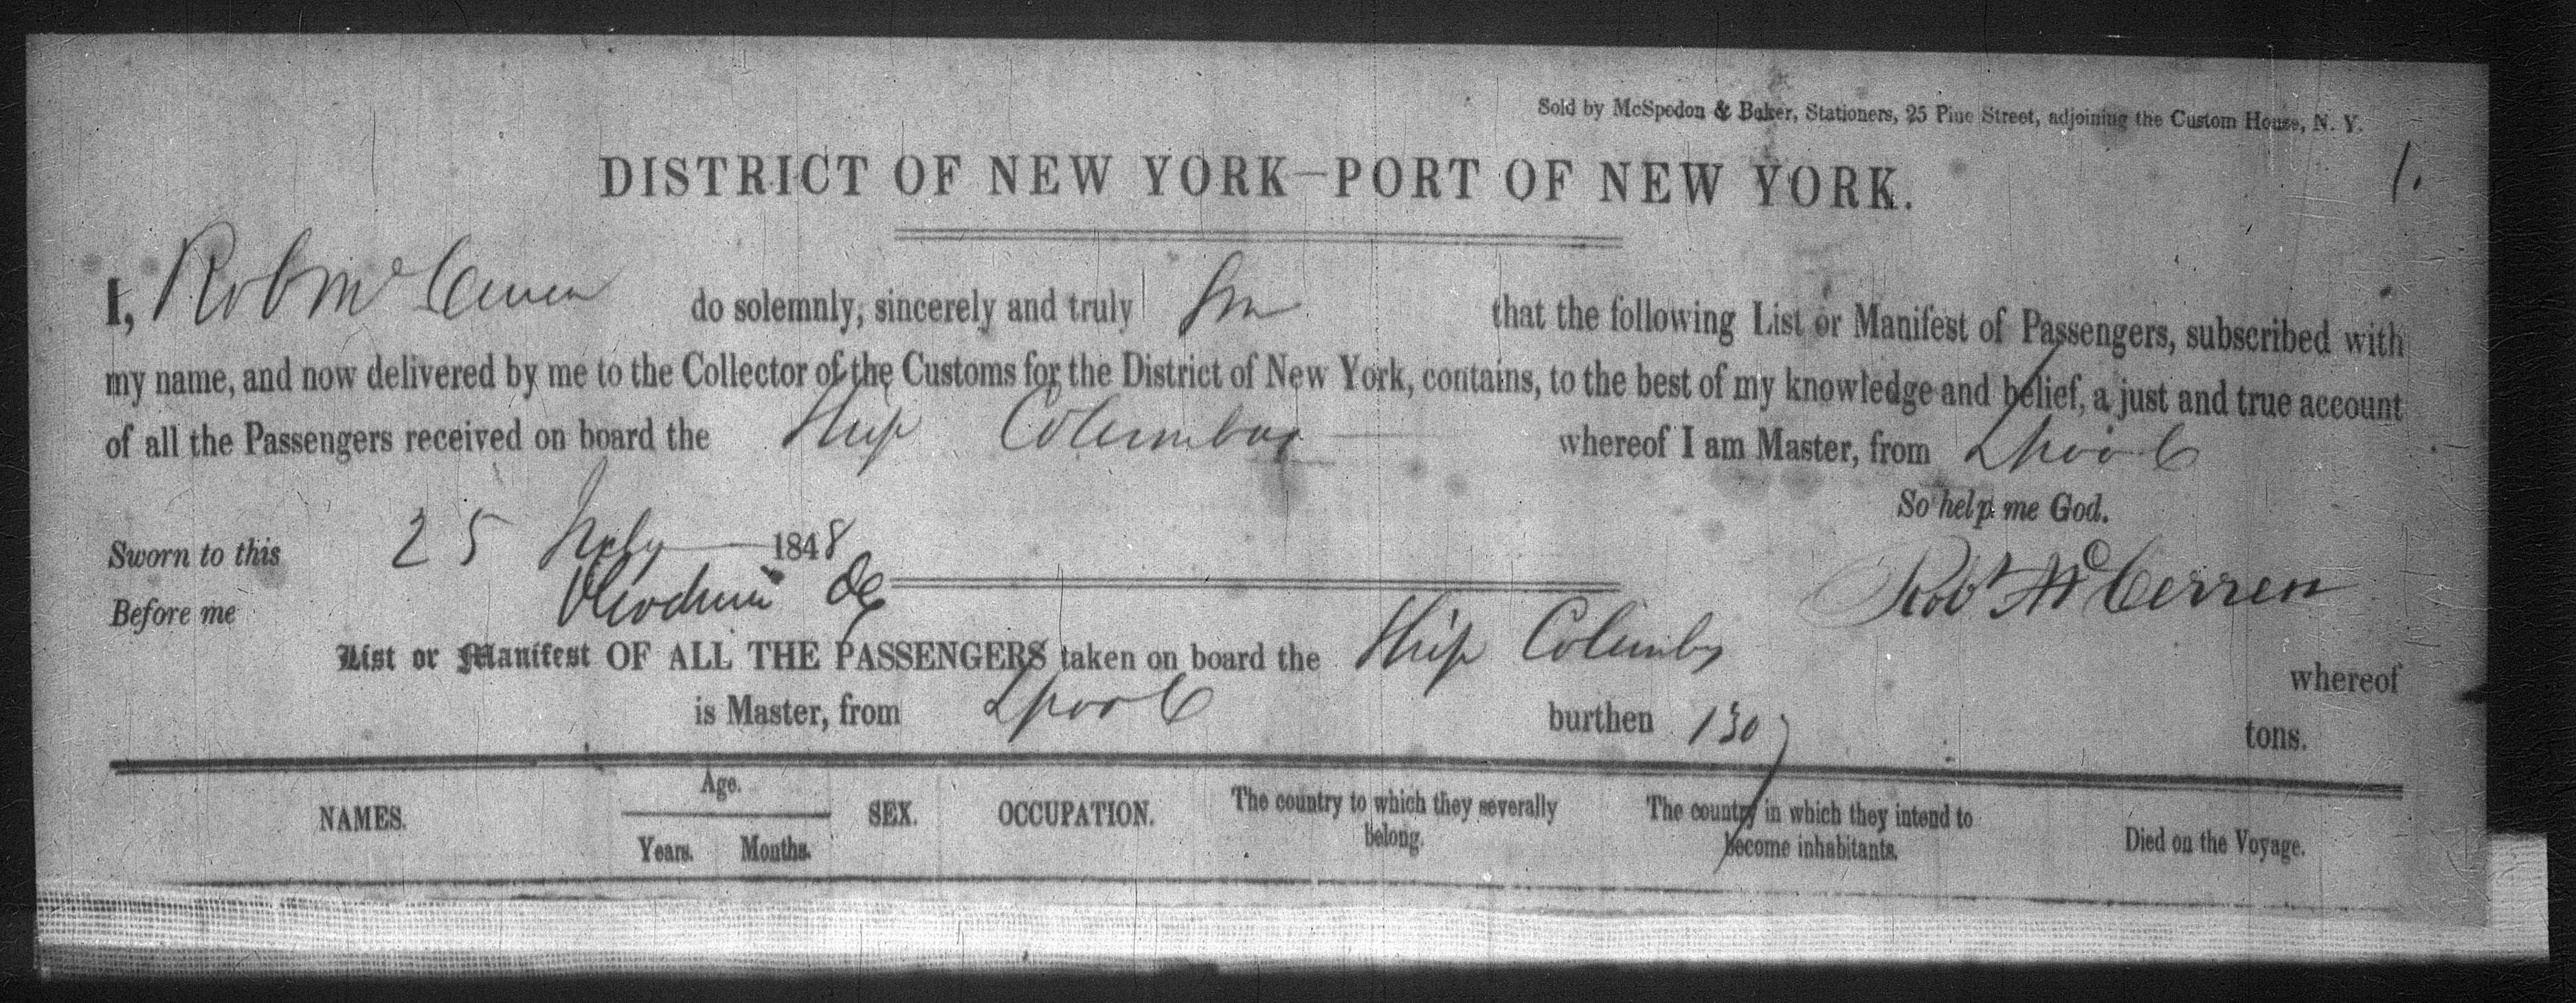 Sold by McSpedon & Baker, Stationers, 25 Pine Street, adjoining the Custom House, N. Y.
1.
DISTRICT OF NEW YORK—PORT OF NEW YORK.
I, Rob Mc do solemnly, sincerely and truly that the following List or Manifest of Passengers, subscribed with
my name, and now delivered by me to the Collector of the Customs for the District of New York, contains, to the best of my knowledge and belief, a just and true account
of all the Passengers received on board the Ship Columbus whereof I am Master, from Lpool
So help me God.
Sworn to this 25 July 1848
Before me Robt Mc Cerren
List or Manifest OF ALL THE PASSENGERS taken on board the Ship Columbs whereof
is Master, from Lpool burthen 1307 tons.
NAMES. Age. SEX. OCCUPATION. The country to which they severally belong. The country in which they intend to become inhabitants. Died on the Voyage.
Years. Months.